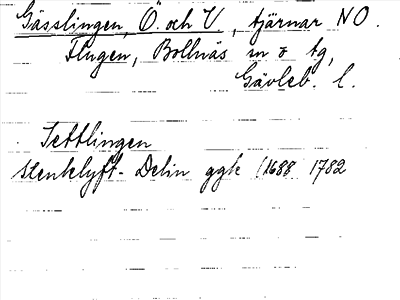 Gässlingen, Ö. och V., tjärnar NO.
Flugen, Bollnäs sn o tg,
Gävleb. l.
Settlingen
Stenklyft- Delin ggk (1688 1782